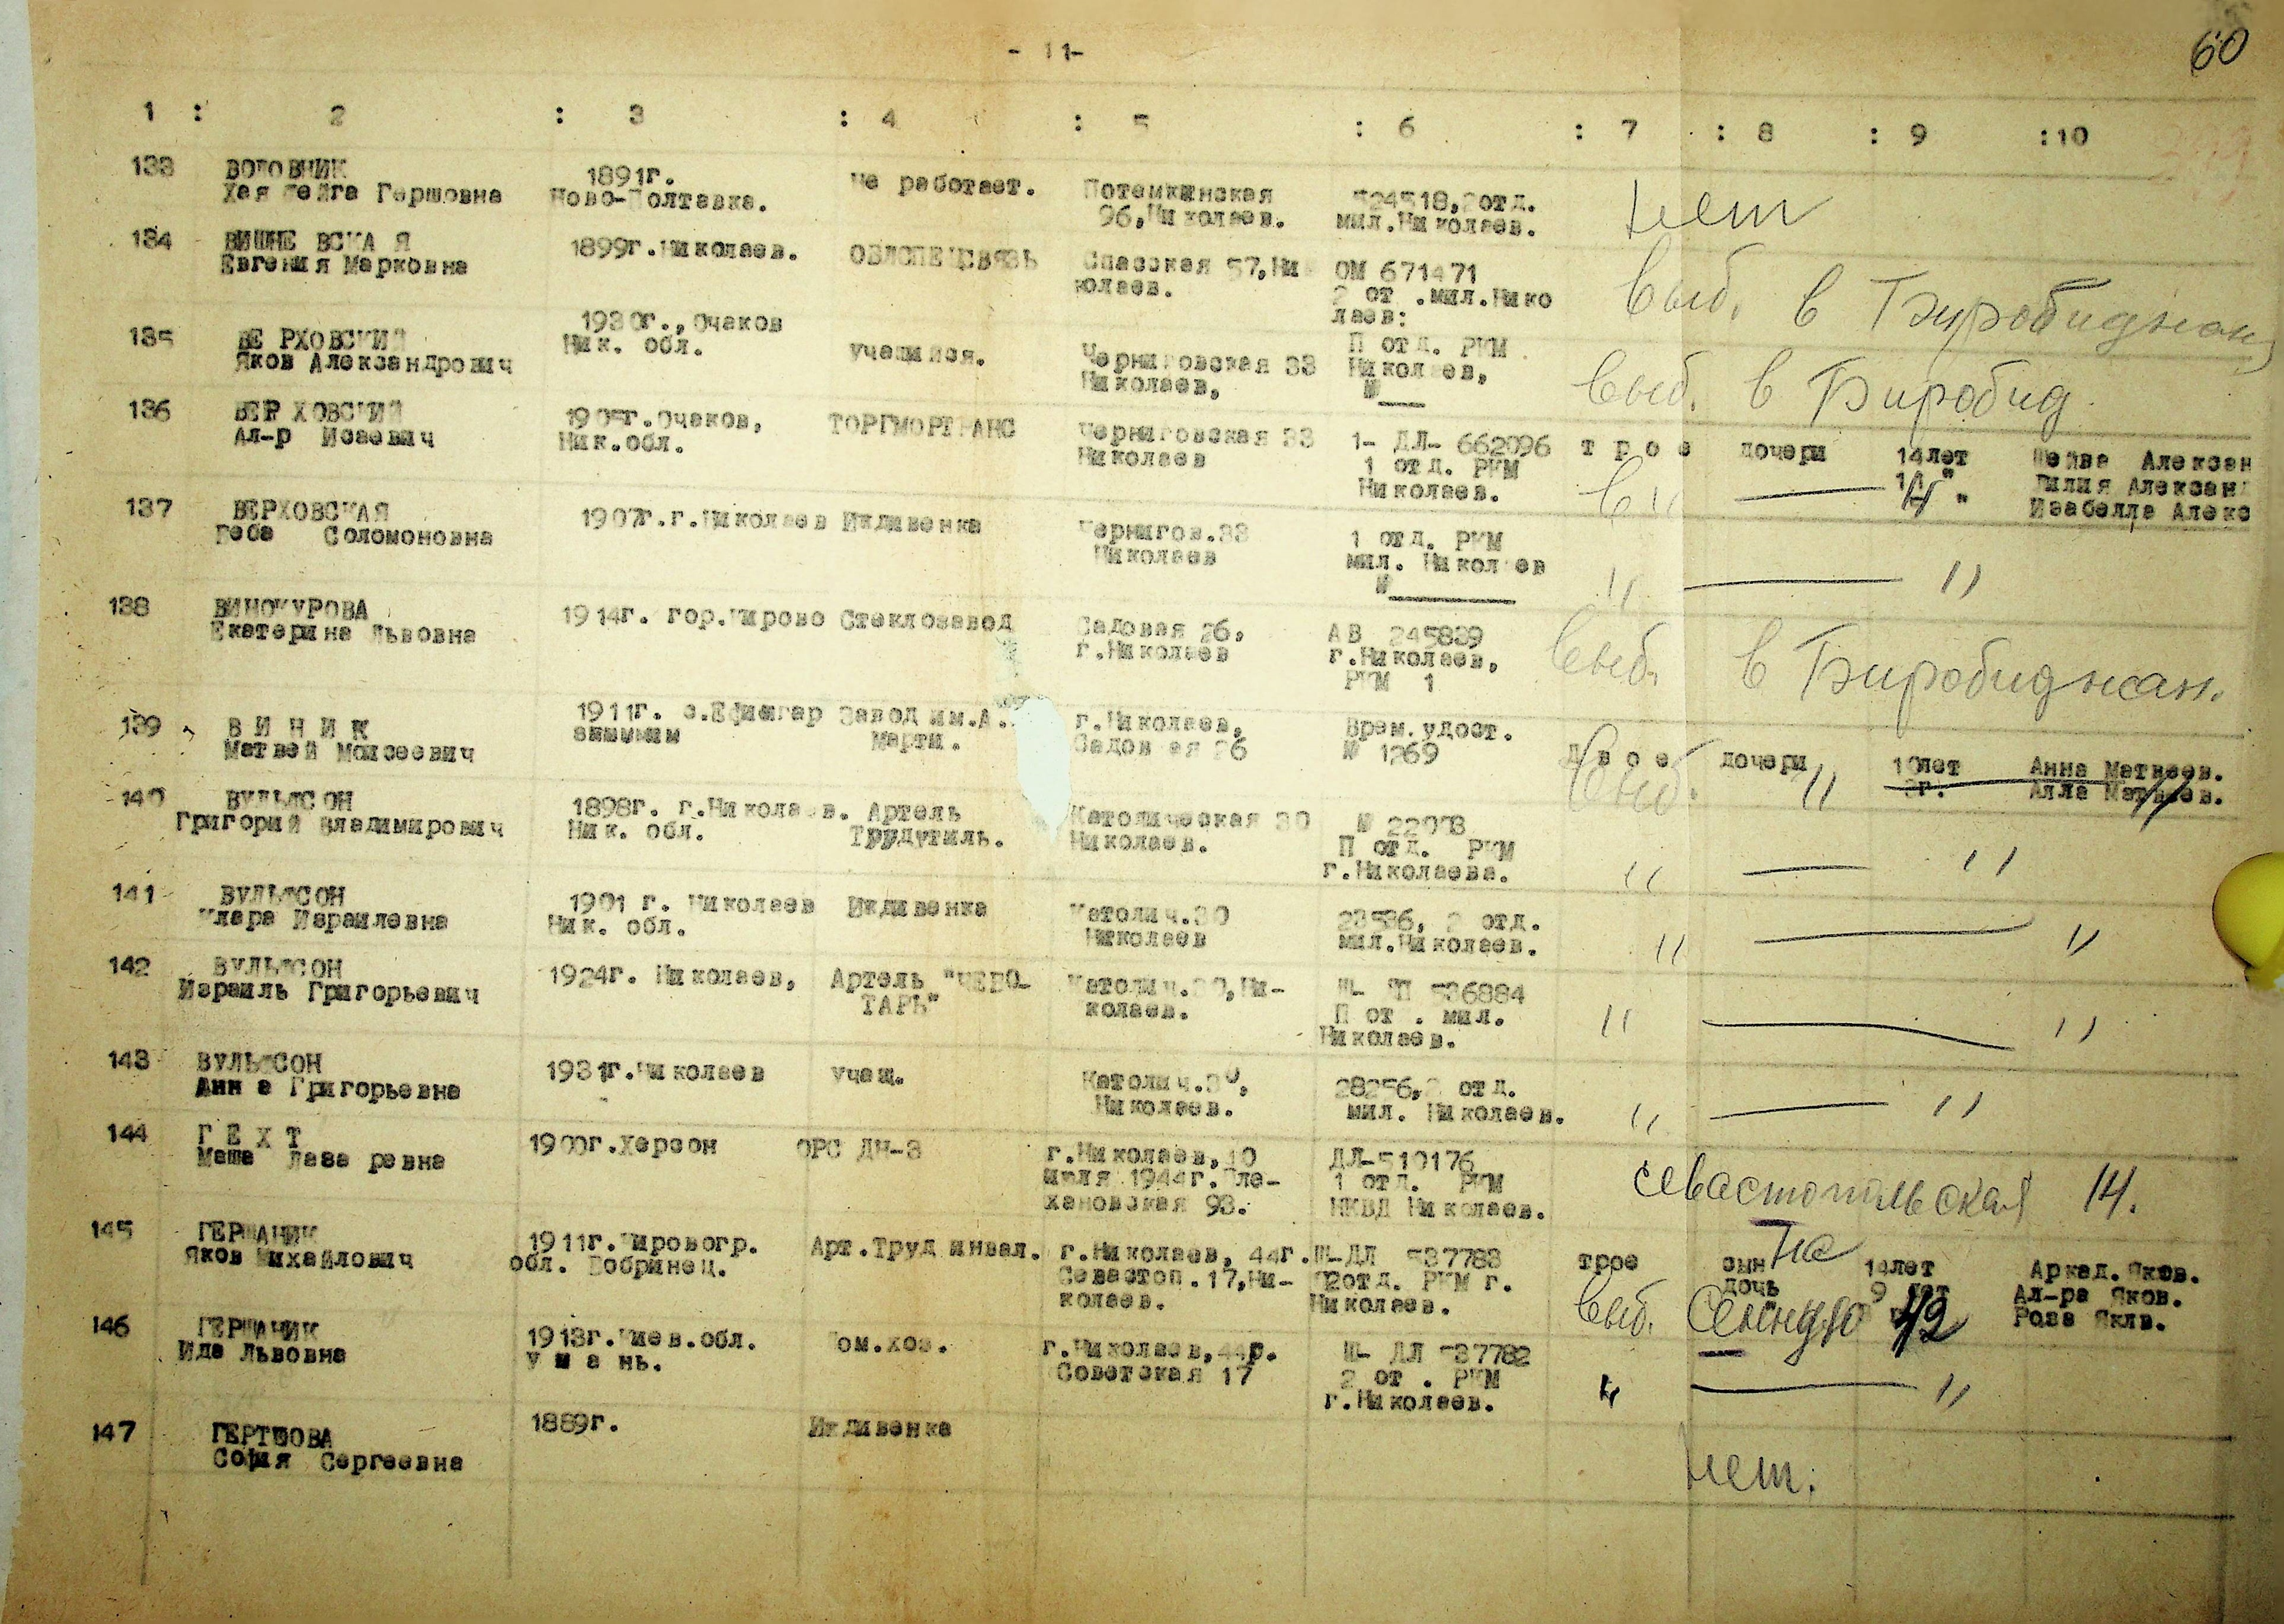 60
- 11-
1 : 2 : 3 : 4 : 5 : 6 : 7 : 8 : 9 :10
133 ВОТОВНИК 1891г. не работает. Потемкинская 524518,2отд. нет
Хая Гершовна Ново-Полтавка. 96,Николаев. мил.Николаев.
134 ВИШНЕ ВСКА Я 1899г.Николаев. ОБЛСПЕЦСВЯЗЬ Спасская 57,Ни ОМ 671471 выб. в Биробиджан
Евгения Марковна колаев. 2 от .мил.Нико
лаев:
135 ВЕ РХОВСКИЙ 1930г.,Очаков учащийся. Черниговская 33 П отд. РКМ выб. в Биробид.
Яков Александрович Ник. обл. Николаев, Николаев,
№__
136 ВЕР ХОВСКИЙ 1905г.Очаков, ТОРГМОРТРАНС Черниговская 33 1- ДЛ- 662096 т р о е дочери 14лет Шейва Алексан
Ал-р Исаевич Ник.обл. Николаев 1 отд. РКМ 11 " Лилия Александ
Николаев. " — " Изабелла Алекс
137 ВЕРХОВСКАЯ 1907г.г.Николаев Иждивенка Чернигов.33 1 отд. РКМ
Геба Соломоновна Николаев мил. Николаев
№____ " — "
138 ВИНОКУРОВА 1914г. гор.Кирово Стеклозавод Садовая 26, АВ 245839 выб. в Биробиджан.
Екатерина Львовна г.Николаев г.Николаев,
РКМ 1
139 В И Н И К 1911г. с.Ефингар Завод им.А. г.Николаев, Врем.удост. д в о е дочери 10лет Анна Матвеев.
Матвей Моисеевич Марти. Садов ая 26 № 1269 выб. " 3г. Алла Матвеев.
140 ВУЛЬФСОН 1898г. г.Николаев. Артель Католическая 30 № 22073
Григорий Владимирович Ник. обл. Трудутиль. Николаев. П отд. РКМ
г.Николаева. " — "
141 ВУЛЬФСОН 1901 г. Николаев Иждивенка Католич.30 23536, 2 отд.
Клара Израилевна Ник. обл. Николаев мил.Николаев. " — "
142 ВУЛЬФСОН 1924г. Николаев, Артель "ЧЕБО- Католич.30,Ни- Ш- ЧП 536884
Израиль Григорьевич ТАРЬ" колаев. П от . мил. " — "
Николаев.
143 ВУЛЬФСОН 1931г.Николаев учащ. Католич.30, 28256,2 отд.
Анн а Григорьевна Николаев. мил. Николаев. " — "
144 Г Е Х Т 1900г.Херсон ОРС ДН-3 г.Николаев,10 ДЛ-510176
Маша Лаза ревна июля 1944г.Пле- 1 отд. РКМ севастопольская 14.
хановская 93. НКВД Николаев.
145 ГЕРШАНИК 1911г.Кировогр. Арт.Труд инвал. г.Николаев, 44г. Ш-ДЛ 537783 трое сын 14лет Аркад.Яков.
Яков Михайлович обл. Бобринец. Севастоп.17,Ни- 2отд. РКМ г. дочь 9 лет Ал-ра Яков.
колаев. Николаев. выб. на Слободу 42 Роза Яклв.
146 ГЕРШАНИК 1913г.Киев.обл. Дом.хоз. г.Николаев,44р. Ш- ДЛ 537782
Ида Львовна У м а нь. Советская 17 2 от . РКМ " — "
г.Николаев.
147 ГЕРТШОВА 1889г. Иждивенка
София Сергеевна нет.